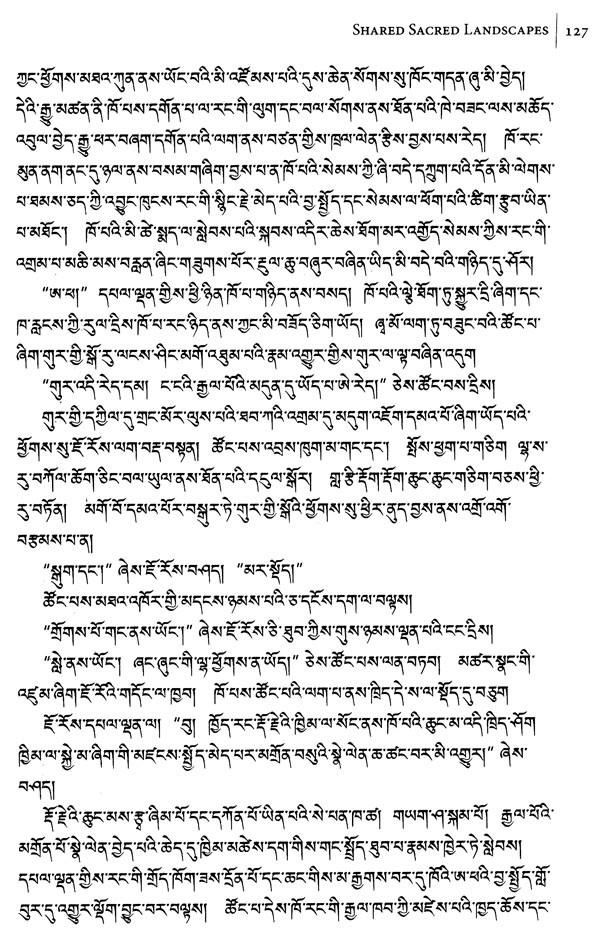 SHARED SACRED LANDSCAPES 127
ཀྱང་ཕྱོགས་མཐའ་ཀུན་ནས་ཡོང་བའི་མི་འཛོམས་པའི་དུས་ཆེན་སོགས་སུ་ཁོང་གདན་ཞུ་མི་བྱེད།
དེའི་རྒྱུ་མཚན་ནི་ཁོ་པས་དགོན་པ་ལ་རང་གི་ལུག་དང་བལ་སོགས་ནས་ཐོན་པའི་ཁེ་བཟང་ལས་མཆོད་
འབུལ་བྱེད་རྒྱུ་ཕར་བཞག་དགོན་པའི་ལག་ནས་བཙན་གྱིས་ཁྲལ་ལེན་རྩིས་བྱས་པས་རེད། ཁོ་རང་
མུན་ནག་ནང་དུ་ཉལ་ནས་བསམ་གཞིག་བྱས་པ་ན་ཁོ་པའི་སེམས་ཀྱི་ཞི་བདེ་དཀྲུག་པའི་དོན་མི་ལེགས་
པ་ཐམས་ཅད་ཀྱི་འབྱུང་ཁུངས་རང་གི་སྙིང་རྗེ་མེད་པའི་བྱ་སྤྱོད་དང་སེམས་ལ་ཕོག་པའི་ཚིག་རྩུབ་ཡིན་
པ་མཐོང་། ཁོ་པའི་མི་ཚེ་སྨད་ལ་སླེབས་པའི་སྐབས་འདིར་ཆེས་ཐོག་མར་འགྱོད་སེམས་ཀྱིས་རང་གི་
འགྲམ་པ་མཆི་མས་བརླན་ཞིང་གཟུགས་པོར་རྔུལ་ཆུ་བཞུར་བཞིན་ཡིད་མི་བདེ་བའི་གཉིད་དུ་ཤོར།
“ཨ་ཕ།” དཔལ་ལྡན་གྱིས་ཕྱི་ཉིན་ཁོ་པ་གཉིད་ནས་བསད། ཁོ་པའི་ལྕེ་ཐོག་ཏུ་སྐྱུར་དྲི་ཞིག་དང་
ཁ་རླངས་ཀྱི་རུལ་དྲིས་ཁོ་པ་རང་ཉིད་ནས་ཀྱང་མི་བཟོད་ཅིག་ཡོད། ཞྭ་མོ་ལག་ཏུ་བཟུང་བའི་ཚོང་པ་
ཞིག་གུར་གྱི་སྒོ་རུ་ལངས་ཤིང་མགོ་འཐུམ་པའི་རྣམ་འགྱུར་གྱིས་གུར་ལ་ལྟ་བཞིན་འདུག
“གུར་འདི་རེད་དམ། ང་ངའི་རྒྱལ་པོའི་མདུན་དུ་ཡོད་པ་ཨེ་རེད།” ཅེས་ཚོང་བས་དྲིས།
གུར་གྱི་དཀྱིལ་དུ་གྲང་མོར་ལུས་པའི་ཐབ་ཀའི་འགྲམ་དུ་མདུག་འཇོག་དམའ་པོ་ཞིག་ཡོད་པའི་
ཕྱོགས་སུ་ཇོ་རོས་ལག་བརྡ་བསྟན། ཚོང་པས་འབྲས་ཁུག་མ་གང་དང་། སྤོས་ཕྱག་པ་གཅིག ལྷ་ས་
རུ་བཀོལ་ཆོག་ཅིང་བལ་ཡུལ་ནས་ཐོན་པའི་དངུལ་སྒོར། གླ་རྩི་རྡོག་རྡོག་ཆུང་ཆུང་གཅིག་བཅས་ཕྱི་
རུ་བཏོན། མགོ་བོ་དམའ་པོར་བསྒུར་ཏེ་གུར་གྱི་སྒོའི་ཕྱོགས་སུ་ཕྱིར་ནུད་བྱས་ནས་འགྲོ་འགོ་
བརྩམས་པ་ན།
“སྒུག་དང་།” ཞེས་ཇོ་རོས་བཤད། “མར་སྡོད།”
ཚོང་པས་མཐའ་འཁོར་གྱི་མདངས་ཉམས་པའི་ཅ་དངོས་དག་ལ་བལྟས།
“གྲོགས་པོ་གང་ནས་ཡོང་།” ཞེས་ཇོ་རོས་ཅི་ཐུབ་ཀྱིས་གུས་ཉམས་ལྡན་པའི་ངང་དྲིས།
“སླེ་ནས་ཡོང་། ཞང་ཞུང་གི་ལྷ་ཕྱོགས་ན་ཡོད།” ཅེས་ཚོང་པས་ལན་བཏབ། མཚར་སྣང་གི་
འཛུམ་ཞིག་ཇོ་རོའི་གདོང་ལ་ཁྱབ། ཁོ་པས་ཚོང་པའི་ལག་པ་ནས་ཁྲིད་དེ་ས་ལ་སྡོད་དུ་བཅུག
ཇོ་རོས་དཔལ་ལྡན་ལ། “བུ། ཁྱོད་རང་རྡོ་རྗེའི་ཁྱིམ་ལ་སོང་ནས་ཁོ་པའི་ཆུང་མ་འདི་ཁྲིད་ཤོག
ཁྱིམ་ལ་སྐྱེ་མ་ཞིག་གི་མཛངས་སྤྱོད་མེད་པར་མགྲོན་བསུའི་སྣེ་ལེན་ཆ་ཚང་བར་མི་འགྱུར།” ཞེས་
བཤད།
རྡོ་རྗེའི་ཆུང་མས་རྩྭ་ཞིམ་པོ་དང་དཀོན་པོ་ཡིན་པའི་སེ་པན་ཁ་ཚ། གཡག་ཤ་སྐམ་པོ། རྒྱལ་པོའི་
མགྲོན་པོ་སྣེ་ལེན་བྱེད་པའི་ཆེད་དུ་ཁྱིམ་མཚེས་དག་གིས་གང་སྤྲོད་ཐུབ་པ་རྣམས་ཁྱེར་ཏེ་སླེབས།
དཔལ་ལྡན་གྱིས་རང་གི་གྲོད་ཁོག་ཟས་དྲོན་པོ་དང་ཆང་གིས་མ་རྒྱགས་བར་དུ་ཁོའི་ཨ་ཕའི་བྱ་སྤྱོད་གློ་
བུར་དུ་འགྱུར་ལྡོག་བྱུང་བར་བལྟས། ཚོང་པ་དེས་ཁོ་རང་གི་རྒྱལ་ཁབ་ཀྱི་མཛེས་པའི་ཁྱད་ཆོས་དང་